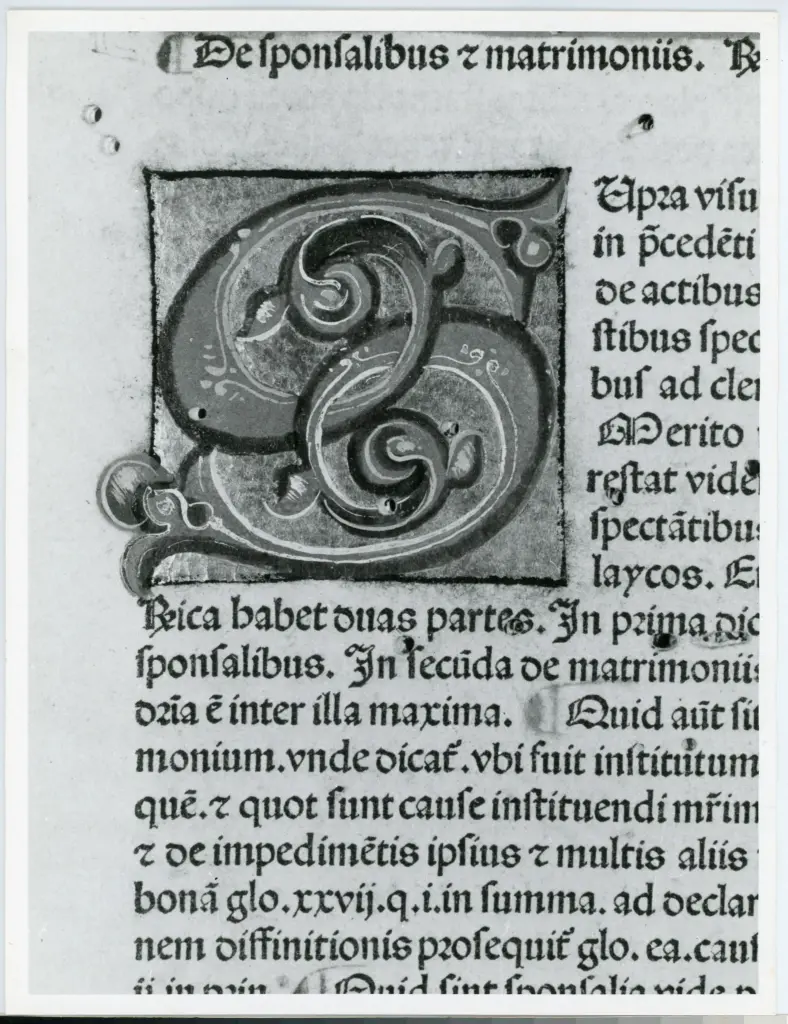 De ſponſalibus ⁊ matrimoniis. Ɍ
S
Upra viſu
in p̄cedēti
de actibus
ſtibus ſpec
buſ ad cler
Merito
reſtat vidē
ſpectātibus
laycos. E
brica habet duas partes. In prima dic
ſponſalibus. In ſecūda de matrimonii
dr̄ia ē inter illa maxima. Quid aūt ſit
monium.vnde dicat̄.vbi fuit inſtitutum
quē.⁊ quot ſunt cauſe inſtituendi mr̄im
⁊ de impedimētis ipſius ⁊ multis aliis
bonā glo.xxvij.q.i.in ſumma. ad declar
nem diffinitionis proſequit̄ glo. ea.cauſ
ij.in prin. Quid ſint ſponſalia vide